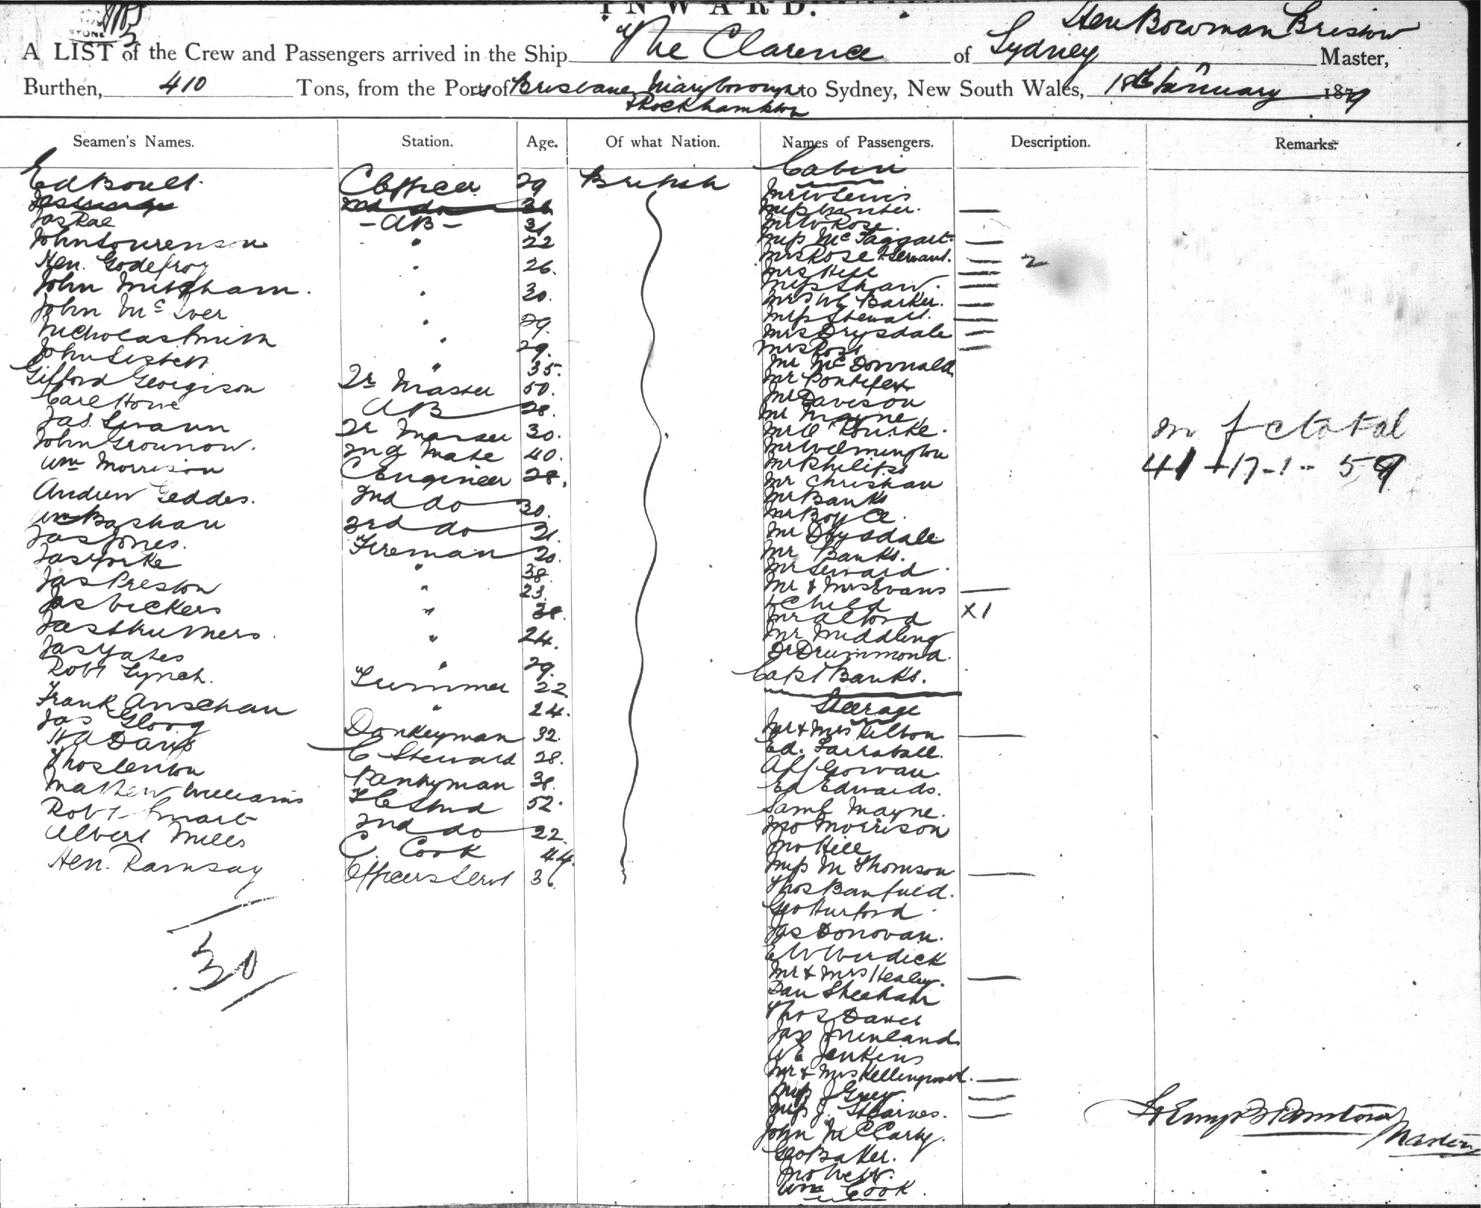 INWARD.
Hen Bowman Bristow
A LIST of the Crew and Passengers arrived in the Ship The Clarence of Sydney Master,
Burthen, 410 Tons, from the Ports of Brisbane, Maryborough to Sydney, New South Wales, 18th January 1879
& Rockhampton
Seamen's Names. Station. Age. Of what Nation. Names of Passengers. Description. Remarks.
Cabin
Ed Boult C Officer 29 British
Mr W Lewis
2nd do
Jas Rae AB 31
Mr W Rose
John Lourenson " 22
Miss McTaggart
Hen. Godefroy " 26
Mrs Rose & Servant. 2
Mrs Hill
John Mitcham " 30
Miss Shaw
Mrs W Barker.
John McIver " 29
Miss Stewart
Nicholas Smith " 29
Mrs Drysdale
John Lisbett " 35
Mrs Ross
Gifford Georgison Lr Master 50
Mr McDonnald
Mr Pontifex
Carl Howe AB 28
Mr Davison
Mr Mayne
Jas Swann Lr Master 30
Mr O'Rourke
John Grounow. 2nd Mate 40
Mr Wilmington
Mr Philips
Wm Morrison C Engineer 28
Mr Christian
Andrew Geddes. 2nd do 30
Mr Banks
Mr Boyce
Basham 3rd do 21
Mr Drysdale
Jas Jones. Fireman 20
Mr Banks.
Jas Yorke " 38
Mr Seward
Jas Preston " 23
Mr & Mrs Evans
Jas Vickers " 38
& Child X1
Mr Alford
Jas " 24
Mr Middling
Jas Yates " 29
Dr Drummond
Robt Lynch. Trimmer 22
Capt Banks.
Frank " 24
Steerage
Jas Donkeyman 32
Mr & Mrs Kilton
H A Davis C Steward 28
Ed. Farraball
Thos Lenton Pantryman 38
Alf Gowan
Mathew Williams F C Stwd 52
Ed Edwards.
Robt Smart 2nd do 22
Saml Mayne.
Albert Mills C. Cook 44
Jno Morrison
Jno Hill
Hen. Ramsay Officers Servt 36
Miss M Thomson
Thos Banfield.
Geo Hurford
Jas Donovan.
E W Werdick
30
Mr & Mrs Healey.
Dan Sheehan
Thos Davis
Jas
W E Jenkins
Mr & Mrs
Miss J Grey.
Miss J. Stearnes.
John McCarty.
Geo Baker.
Jno Webb.
Wm Cook.
m f c total
41 + 17 - 1 - 59
Master